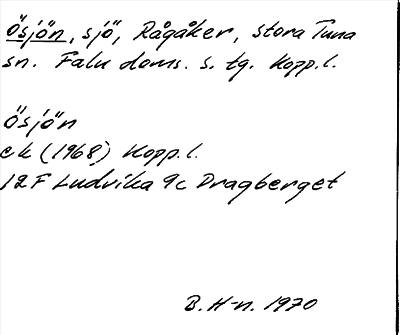 Ösjön, sjö, Rågåker, stora Tuna
sn. Falu doms. s. tg. Kopp.l.
Ösjön
ek (1968) Kopp.l.
12F Ludvika 9c Dragberget
B. H-n. 1970